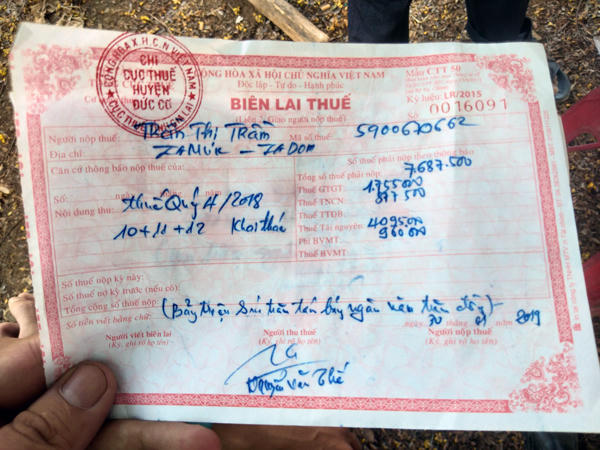 CỘNG HÒA X.H.C.N VIỆT NAM
CHI
CỤC THUẾ
HUYỆN
ĐỨC CƠ
CỘNG HÒA XÃ HỘI CHỦ NGHĨA VIỆT NAM
Độc lập - Tự do - Hạnh phúc
Mẫu CTT 50
BIÊN LAI THUẾ
(Liên 2: Giao người nộp thuế)
Ký hiệu: LR/2015
Số: 0016091
Người nộp thuế: Trần Thị Trầm Mã số thuế: 5900670662
Địa chỉ: IAMÚK - IADOM
Căn cứ thông báo nộp thuế của:
Số: ngày
Nội dung thu: thuế Quý 4/2018
10+11+12 Khai thác
Số thuế phải nộp theo thông báo
Tổng số thuế phải nộp: 7.687.500
Thuế GTGT 1.755.000
Thuế TNCN: 877500
Thuế TTĐB:
Thuế Tài nguyên: 4095000
Phí BVMT: 960000
Thuế BVMT:
Số thuế nộp kỳ này:
Số thuế nợ kỳ trước (nếu có):
Tổng cộng số thuế nộp:
Số tiền viết bằng chữ: (Bảy triệu sáu trăm tám bảy ngàn năm trăm đồng)
tháng năm 2019
Người viết biên lai
(Ký, ghi rõ họ tên)
Người thu thuế
(Ký, ghi rõ họ tên)
Người nộp thuế
(Ký, ghi rõ họ tên)
Nguyễn Văn Thế